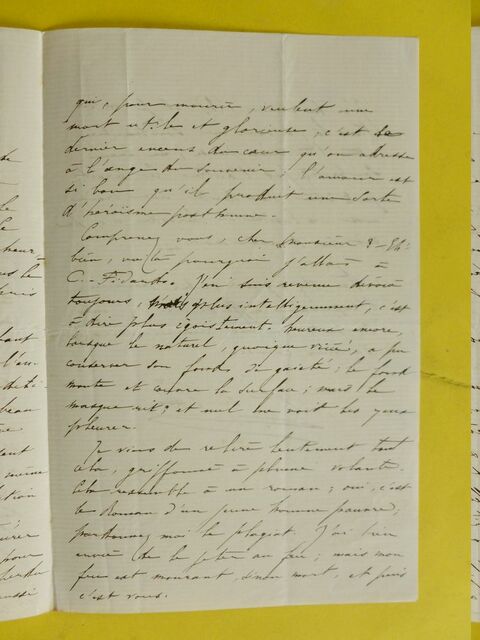 qui, pour mourir, veulent une
mort utile et glorieuse; c'est le
dernier encens du cœur qu'on adresse
à l'ange du souvenir; l'amour est
si bon qu'il produit une sorte
d'héroïsme posthume.
Comprenez vous, cher monsieur? Eh
bien, voilà pourquoi j'allais à
J'en suis revenu dévoué
toujours, plus intelligemment, c'est
à dire plus égoïstement. heureux encore,
lorsque le naturel, quoique vicié, a pu
conserver son fonds de gaieté; le fond
monte et couvre la surface; mais le
masque rit; et nul ne voit les yeux
pleurer.
Je viens de relire lentement tout
cela, griffonné à plume volante.
Cela ressemble à un roman; oui, c'est
le Roman d'un jeune homme pauvre;
pardonnez moi le plagiat. J'ai bien
envie de le jeter au feu; mais mon
feu est mourant, sinon mort, et puis
c'est vous.